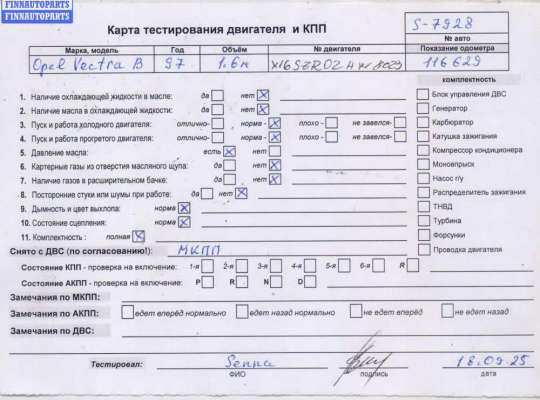 FINNAUTOPARTS
FINNAUTOPARTS
Карта тестирования двигателя и КПП
S-7928
№ авто
Марка, модель Год Объём № двигателя Показание одометра
Opel Vectra B 97 1.6л 116629
комплектность
1. Наличие охлаждающей жидкости в масле: да нет
2. Наличие масла в охлаждающей жидкости: да нет
3. Пуск и работа холодного двигателя: отлично- норма - плохо - не завелся-
4. Пуск и работа прогретого двигателя: отлично- норма - плохо - не завелся-
5. Давление масла: есть нет
6. Картерные газы из отверстия масляного щупа: да нет
7. Наличие газов в расширительном бачке: да нет
8. Посторонние стуки или шумы при работе: да нет
9. Дымность и цвет выхлопа: норма
10. Состояние сцепления: норма
11. Комплектность : полная
Блок управления ДВС
Генератор
Карбюратор
Катушка зажигания
Компрессор кондиционера
Моновпрыск
Насос г/у
Распределитель зажигания
ТНВД
Турбина
Форсунки
Проводка двигателя
Снято с ДВС (по согласованию!): МКПП
Состояние КПП - проверка на включение: 1-я 2-я 3-я 4-я 5-я 6-я R
Состояние АКПП - проверка на включение: P R N D
Замечания по МКПП:
Замечания по АКПП: едет вперёд нормально едет назад нормально не едет вперёд не едет назад
Замечания по ДВС:
Тестировал: 18.09.25
ФИО подпись дата